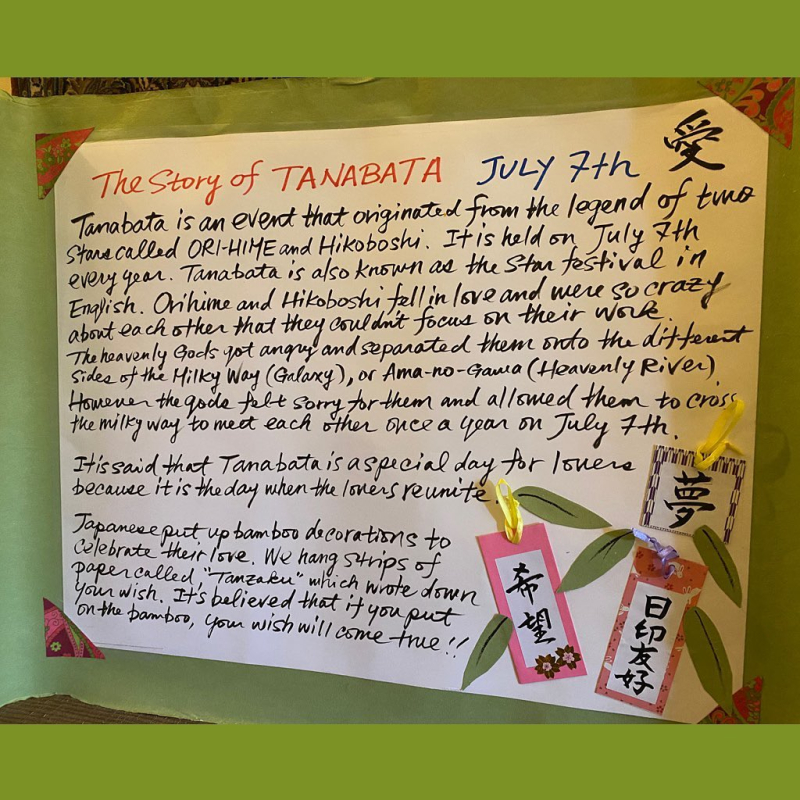 The Story of TANABATA JULY 7th
愛
Tanabata is an event that originated from the legend of two
Stars called ORI-HIME and Hikoboshi. It is held on July 7th
every year. Tanabata is also known as the Star festival in
English. Orihime and Hikoboshi fell in love and were so crazy
about each other that they couldn't focus on their work.
The heavenly Gods got angry and separated them onto the different
Sides of the Milky Way (Galaxy), or Ama-no-Gawa (Heavenly River)
However the gods felt sorry for them and allowed them to cross
the milky way to meet each other once a year on July 7th.
It is said that Tanabata is a special day for lovers
because it is the day when the lovers reunite.
Japanese put up bamboo decorations to
celebrate their love. We hang strips of
paper called, "Tanzaku" which wrote down
your wish. It's believed that if you put
on the bamboo, your wish will come true!!
夢
希望
日印友好